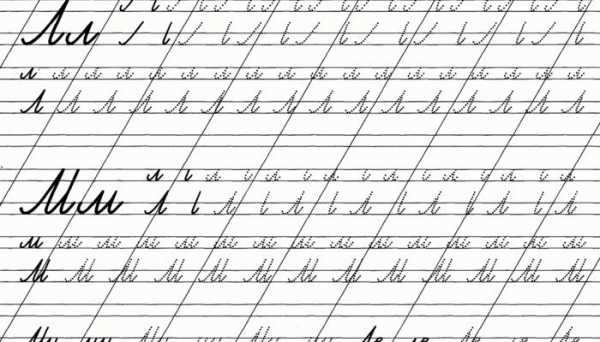 Лл
л л л л л л л л л л л л л л л л л л
Л Л Л Л Л Л Л Л Л Л Л Л Л Л Л Л
Мм
м м м м м м м м м м м м м м м
М М М М М М М М М М М М М